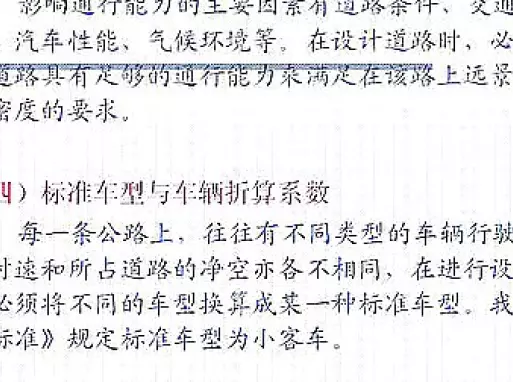 影响通行能力的主要因素有道路条件、交通
、汽车性能、气候环境等。在设计道路时,必
道路具有足够的通行能力来满足在该路上远景
密度的要求。
四）标准车型与车辆折算系数
每一条公路上，往往有不同类型的车辆行驶
时速和所占道路的净空亦各不相同，在进行设
必须将不同的车型换算成某一种标准车型。我
标准》规定标准车型为小客车。